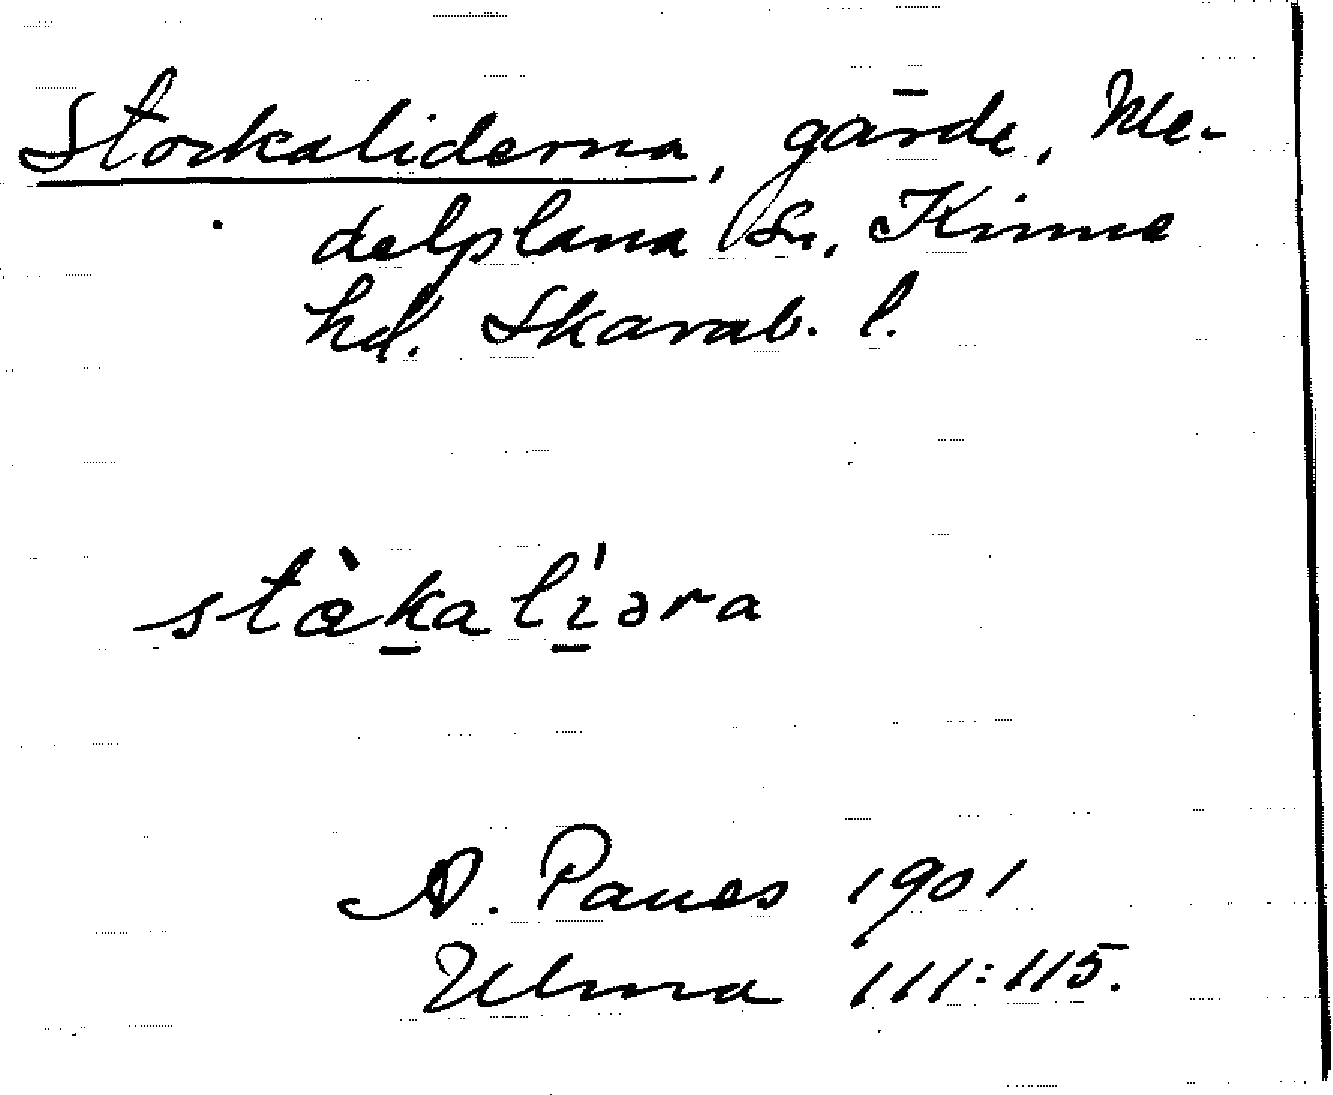 Stockaliderna, gärde, Me-
delplana sn, Kinne
hd. Skarab. l.
stɵ̀ka líəra
A. Panes 1901
Ulma 111:115.